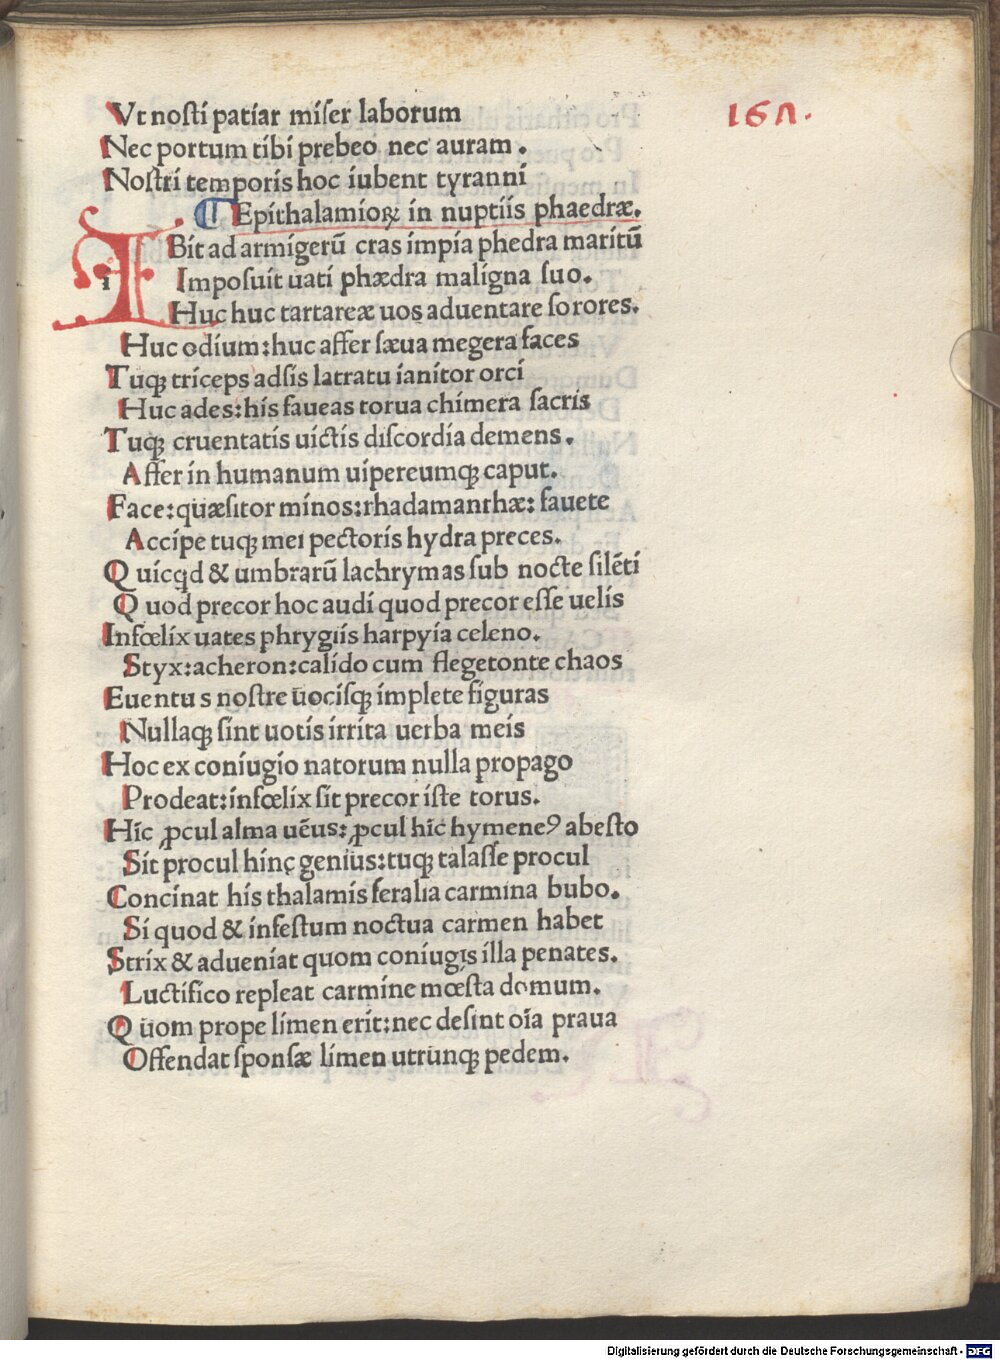 Vt nosti patiar miser laborum
167.
Nec portum tibi prebeo nec auram.
Nostri temporis hoc iubent tyranni
¶ Epithalamioꝝ in nuptiis phaedræ.
IBit ad armigerū cras impia phedra maritū
Imposuit uati phædra maligna suo.
Huc huc tartareæ uos aduentare sorores.
Huc odium:huc affer sæua megera faces
Tuqꝫ triceps adsis latratu ianitor orci
Huc ades:his faueas torua chimera sacris
Tuqꝫ cruentatis uictis discordia demens.
Affer in humanum uipereumqꝫ caput.
Face:quæsitor minos:rhadamanthæ: fauete
Accipe tuqꝫ mei pectoris hydra preces.
Quicqd & umbrarū lachrymas sub nocte silēti
Quod precor hoc audi quod precor esse uelis
Infœlix uates phrygiis harpyia celeno.
Styx:acheron:calido cum flegetonte chaos
Euentu s nostre uocisqꝫ implete figuras
Nullaqꝫ sint uotis irrita uerba meis
Hoc ex coniugio natorum nulla propago
Prodeat:infœlix sit precor iste torus.
Hīc ꝓcul alma uēus:ꝓcul hīc hymeneꝰ abesto
Sit procul hinc genius:tuqꝫ talasse procul
Concinat his thalamis feralia carmina bubo.
Si quod & infestum noctua carmen habet
Strix & adueniat quom coniugis illa penates.
Luctifico repleat carmine mœsta domum.
Quom prope limen erit:nec desint oīa praua
Offendat sponsæ limen utrunqꝫ pedem.
Digitalisierung gefördert durch die Deutsche Forschungsgemeinschaft - DFG